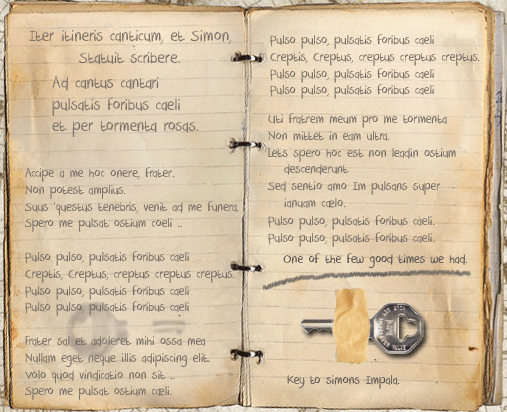 Iter itineris canticum, et Simon,
Statuit scribere.
Ad cantus cantari
pulsatis foribus caeli
et per tormenta rosas.
Accipe a me hoc onere, frater.
Non potest amplius.
Suus 'questus tenebris, venit ad me funera.
Spero me pulsat ostium coeli ..
Pulso pulso, pulsatis foribus caeli
Creptis, Creptus, creptus creptus creptus.
Pulso pulso, pulsatis foribus caeli
Pulso pulso, pulsatis foribus caeli
Frater sal et adoleret mihi ossa mea
Nullam eget neque illis adipiscing elit.
Volo quod vindicatio non sit ..
Spero me pulsat ostium cœli.
Pulso pulso, pulsatis foribus caeli
Creptis, Creptus, creptus creptus creptus.
Pulso pulso, pulsatis foribus caeli
Pulso pulso, pulsatis foribus caeli
Uti fratrem meum pro me tormenta
Non mittet in eam ultra.
Lets spero hoc est non leadin ostium
descenderunt
Sed sentio amo Im pulsans super
ianuam cœlo.
Pulso pulso, pulsatis foribus caeli.
Pulso pulso, pulsatis foribus caeli.
One of the few good times we had.
Key to simons Impala.